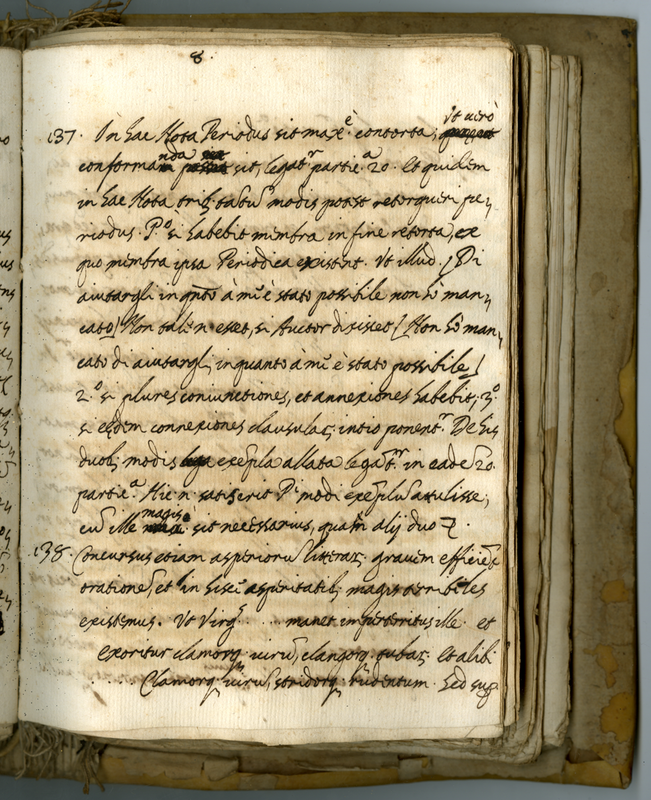 8.
137. In hac Nota Periodus sit maxᵉ. contorta, Ut verò
conformanda sit, legatʳ partic.ᵃ 20. Et quidem
in hac Nota tribꝫ tabū modis potest retorqueri pe„
riodus. P.º si habebit membra in fine retorta, ex
quo membra ipsa Periodica existent. Ut illud. [Di
aiutargli in qñto à mē è stato possibile non hò man„
cato] Non talis n. esset, si Auctor dixisset [Non hò man„
cato di aiutargli, in quanto à mē è stato possibile]
2.º si plures coniunctiones, et annexiones habebit; 3.º
si eædem connexiones clausular; initio ponentʳ. De his
duobꝫ modis exẽpla allata legātʳ in eadē 20.
partic.ᵃ Hic n. satis erit Pⁱ modi exẽplū attulisse,
cū ille magis sit necessarius, quam alij duo
138. Concursus etiam asperiorū litterar; gravem efficiēt
orationē, et in hisce asperitatibꝫ magis terribiles
existemus. Ut Virgˢ. ... manet imperterritus ille. et
exoritur clamorq virū, clangorq tubar; et alibi
... Clamorq virū, stridorq rudentum. Sed sup